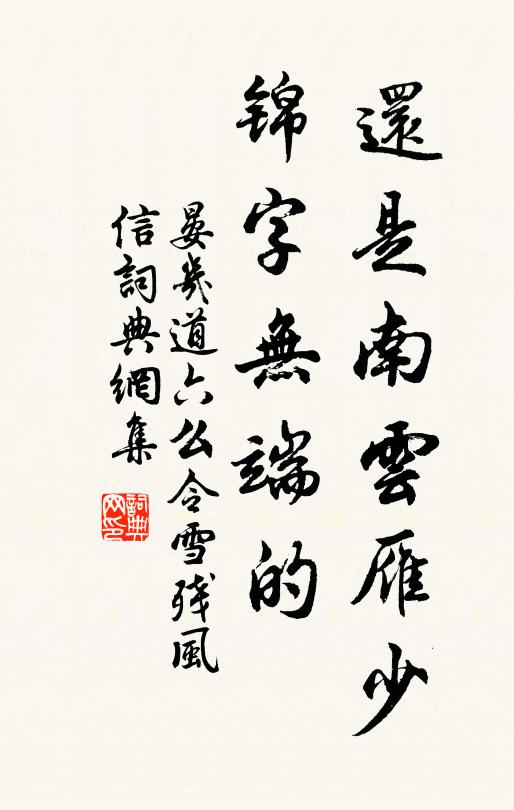 還是南雲雁少
锦字無端的
晏幾道六么令雪残風
信詞典網集
詞典网印